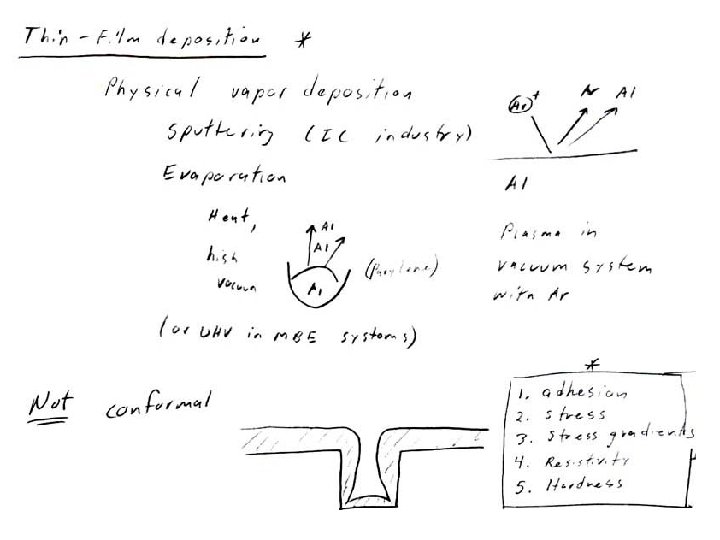 Thin-Film deposition *
Physical vapor deposition
Sputtering (IC industry)
Evaporation
Ar+
Ar Al
Al
Heat,
high
vacuum
Al
Al
Al
(Parylene)
Plasma in
vacuum system
with Ar
(or UHV in MBE systems)
Not conformal
*
1. adhesion
2. stress
3. Stress gradients
4. Resistivity
5. Hardness